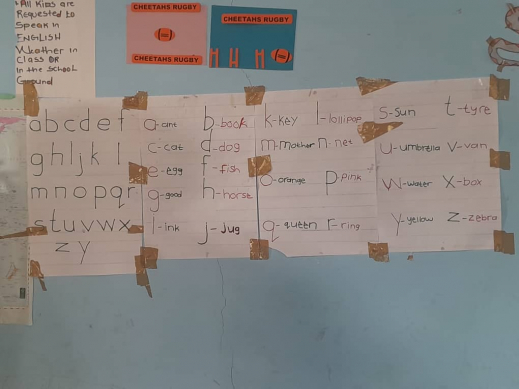 All Kids are
Requested to
Speak in
ENGLISH
Weather in
Class OR
In the School
Ground
CHEETAHS RUGBY
CHEETAHS RUGBY
CHEETAHS RUGBY
a b c d e f
g h i j k l
m n o p q r
s t u v w x
z y
a-ant b-book
c-cat d-dog
e-egg f-fish
g-good h-horse
i-ink j-jug
k-key l-lollipop
m-mother n-net
o-orange p-pink
q-queen r-ring
s-sun t-tyre
u-umbrella v-van
w-water x-box
y-yellow z-zebra